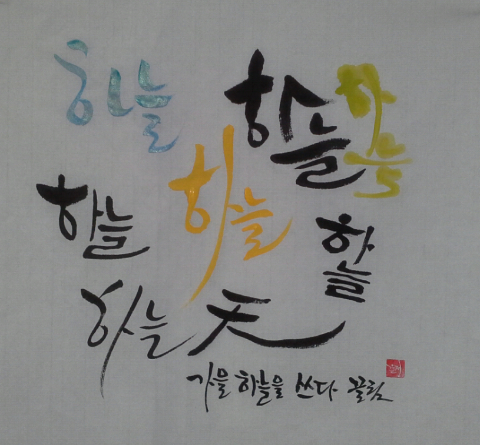 하늘
하늘
하늘
하늘
하늘
하늘
하늘 天
가을 하늘을 쓰다 끌림